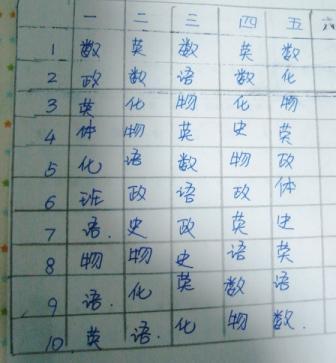 一 二 三 四 五 六
1 数 英 数 英 数
2 政 数 语 数 化
3 英 化 物 化 物
4 体 物 英 史 英
5 化 语 数 物 政
6 班 政 语 政 体
7 语. 史 政 英 史
8 物 物 史 语 英
9 语. 化 英 数 语
10 英 语. 化 物 数.